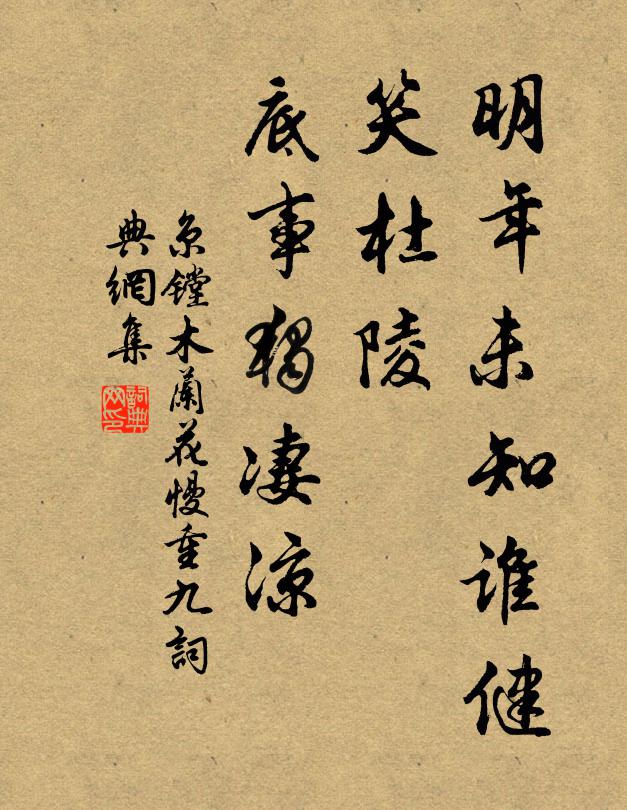 明年未知谁健
笑杜陵
底事獨凄涼
京鏜木蘭花慢重九詞
典網集
詞典
网印